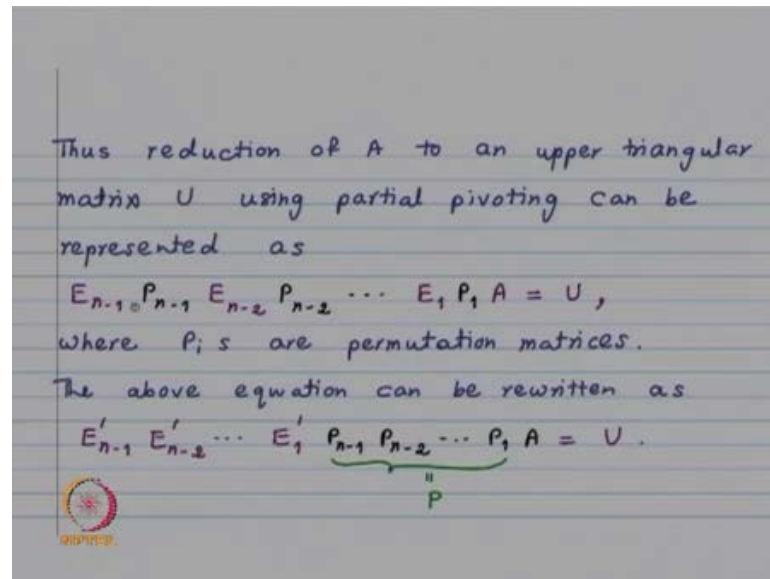 Thus reduction of A to an upper triangular
matrix U using partial pivoting can be
represented as
E_{n-1} P_{n-1} E_{n-2} P_{n-2} ... E_1 P_1 A = U,
where P_i s are permutation matrices.
The above equation can be rewritten as
E'_{n-1} E'_{n-2} ... E'_1 P_{n-1} P_{n-2} ... P_1 A = U.
"
P
NPTEL